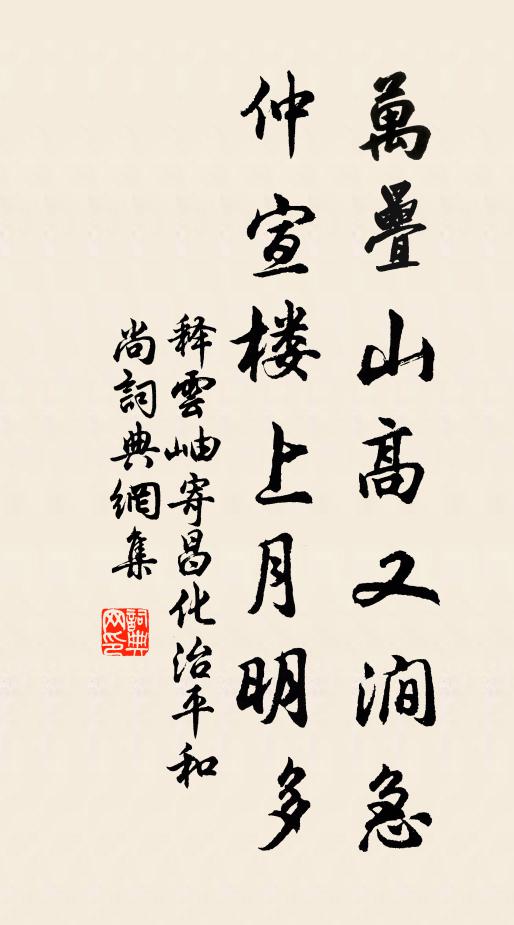 萬疊山高又澗急
仲宣楼上月明多
释雲岫寄昌化治平和
尚詞典網集
詞典網印